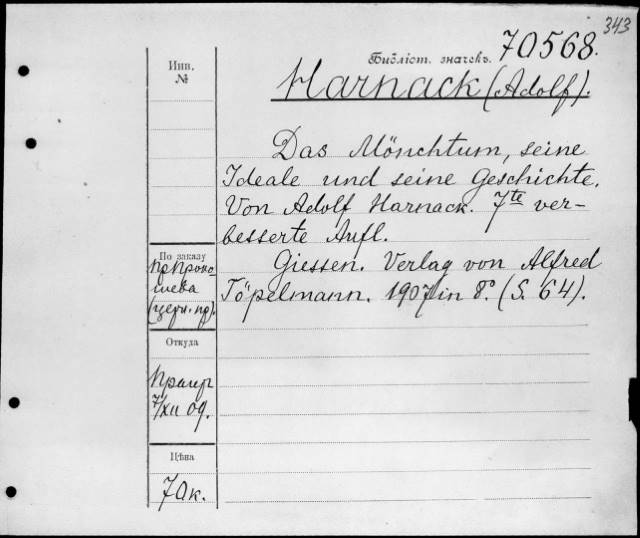 343
Инв.
№
Библіот. значекъ. 70568.
Harnack (Adolf).
Das Mönchtum, seine
Ideale und seine Geschichte.
Von Adolf Harnack. 7te ver-
besserte Aufl.
Giessen. Verlag von Alfred
Töpelmann. 1907 in 8°. (S. 64).
По заказу
(церк. пр).
Откуда
7/XII 09.
Цѣна
70к.